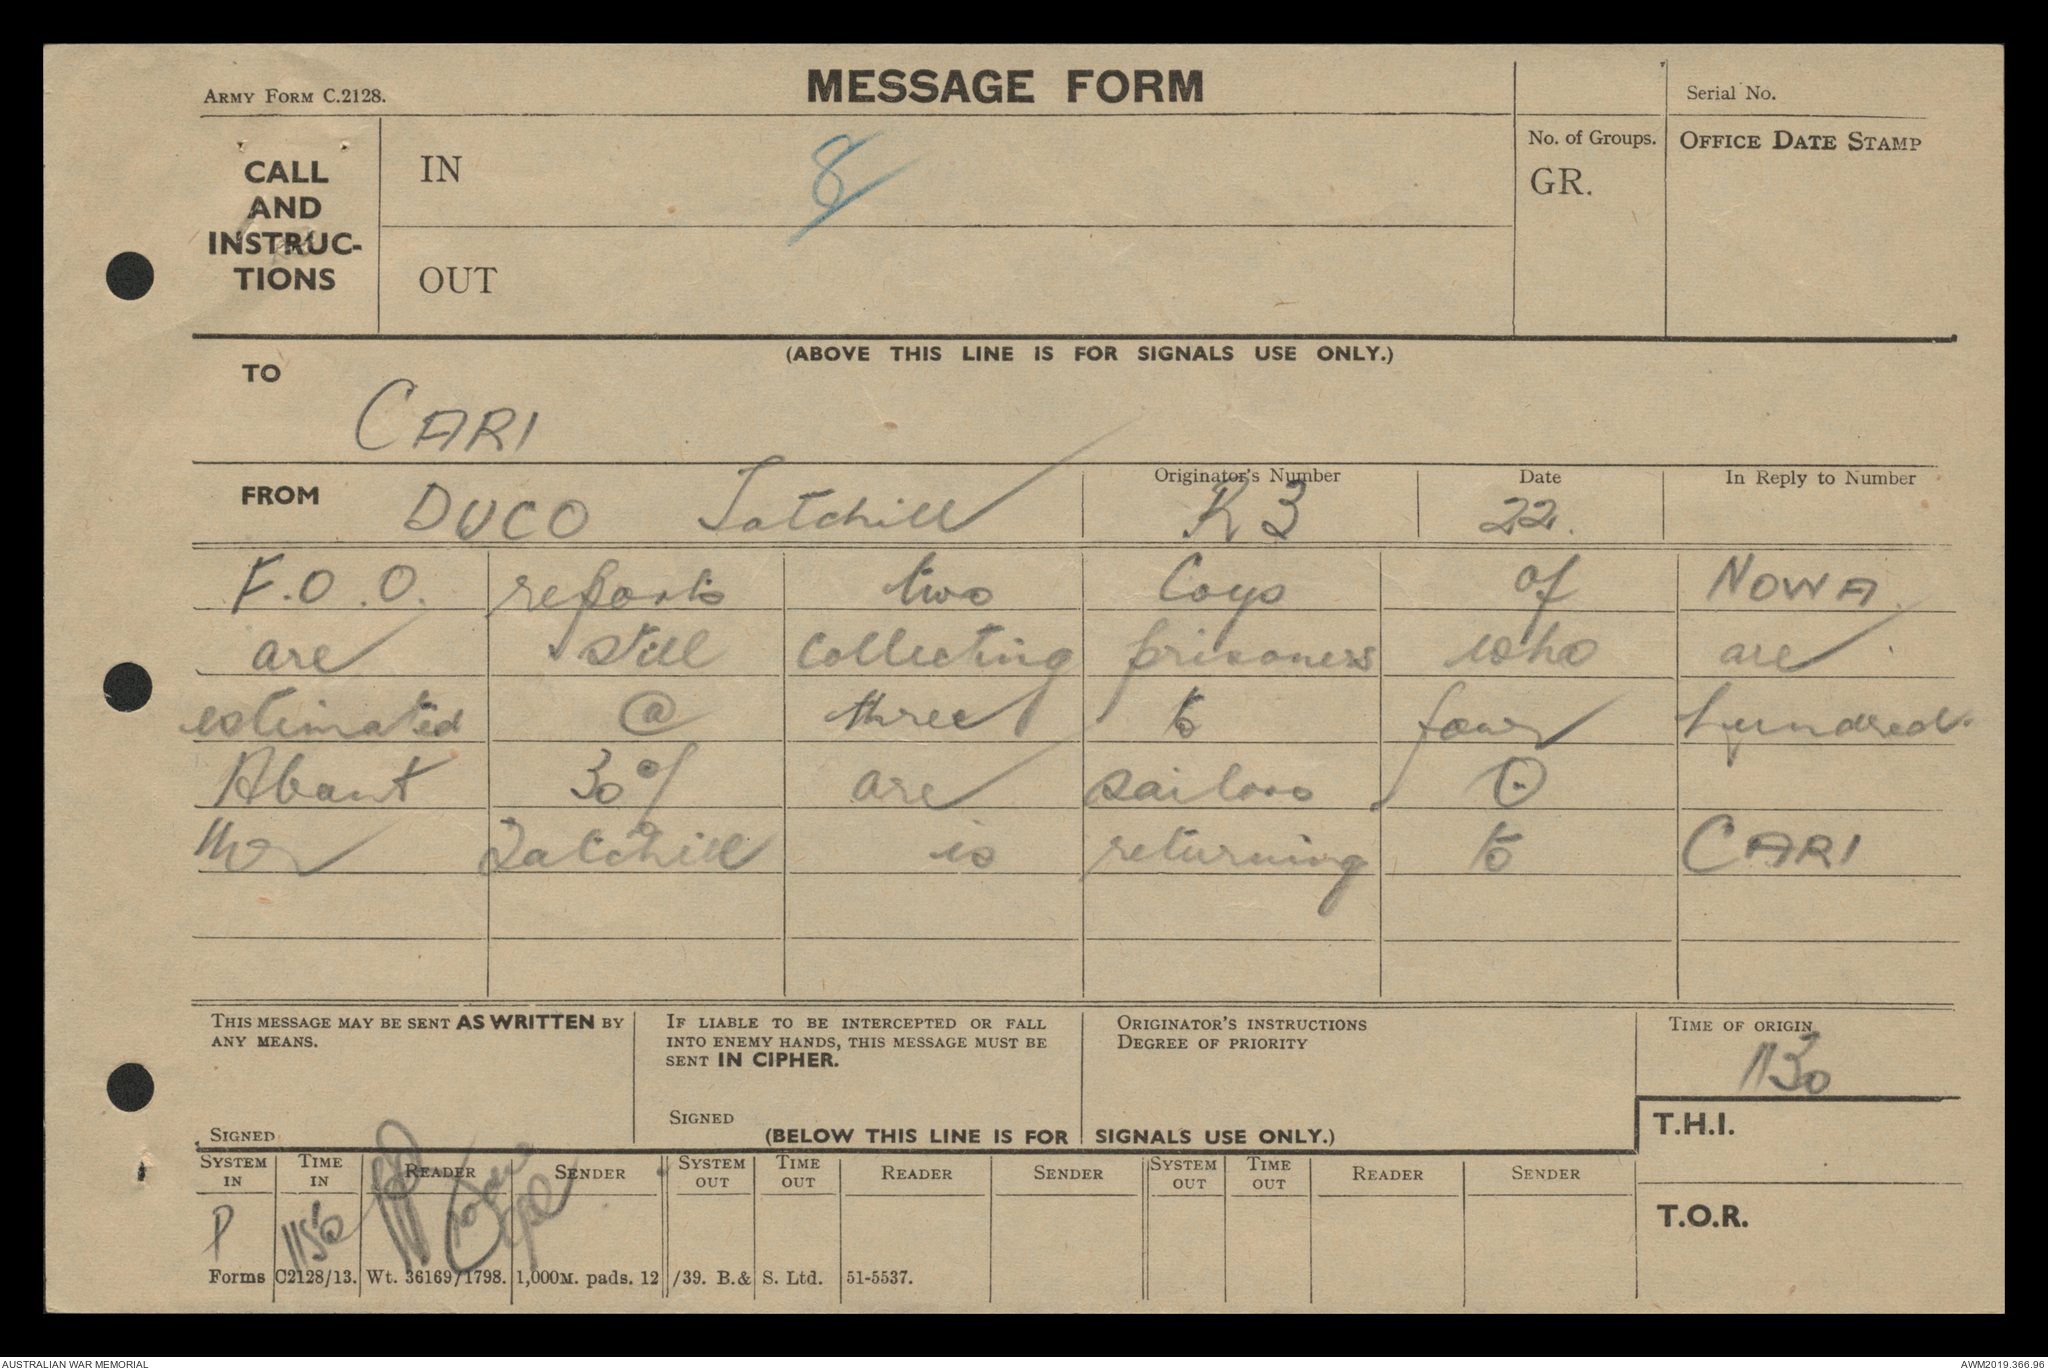 ARMY FORM C.2128.
MESSAGE FORM
Serial No.
CALL AND INSTRUC-TIONS
IN
8
OUT
No. of Groups.
GR.
OFFICE DATE STAMP
(ABOVE THIS LINE IS FOR SIGNALS USE ONLY.)
TO
CARI
FROM DUCO Tatchill
Originator's Number
K 3
Date
22.
In Reply to Number
F.O.O. reports two Coys of NOWA
are still collecting prisoners who are
estimated @ three to four hundred.
About 30% are sailors ⊙
Mor Tatchill is returning to CARI
THIS MESSAGE MAY BE SENT AS WRITTEN BY ANY MEANS.
SIGNED
IF LIABLE TO BE INTERCEPTED OR FALL INTO ENEMY HANDS, THIS MESSAGE MUST BE SENT IN CIPHER.
SIGNED
ORIGINATOR'S INSTRUCTIONS
DEGREE OF PRIORITY
TIME OF ORIGIN
1130
T.H.I.
T.O.R.
(BELOW THIS LINE IS FOR SIGNALS USE ONLY.)
SYSTEM IN TIME IN READER SENDER SYSTEM OUT TIME OUT READER SENDER SYSTEM OUT TIME OUT READER SENDER
P 1150 Cpl
Forms C2128/13. Wt. 36169/1798. 1,000M. pads. 12/39. B.& S. Ltd. 51-5537.
AUSTRALIAN WAR MEMORIAL
AWM2019.366.96